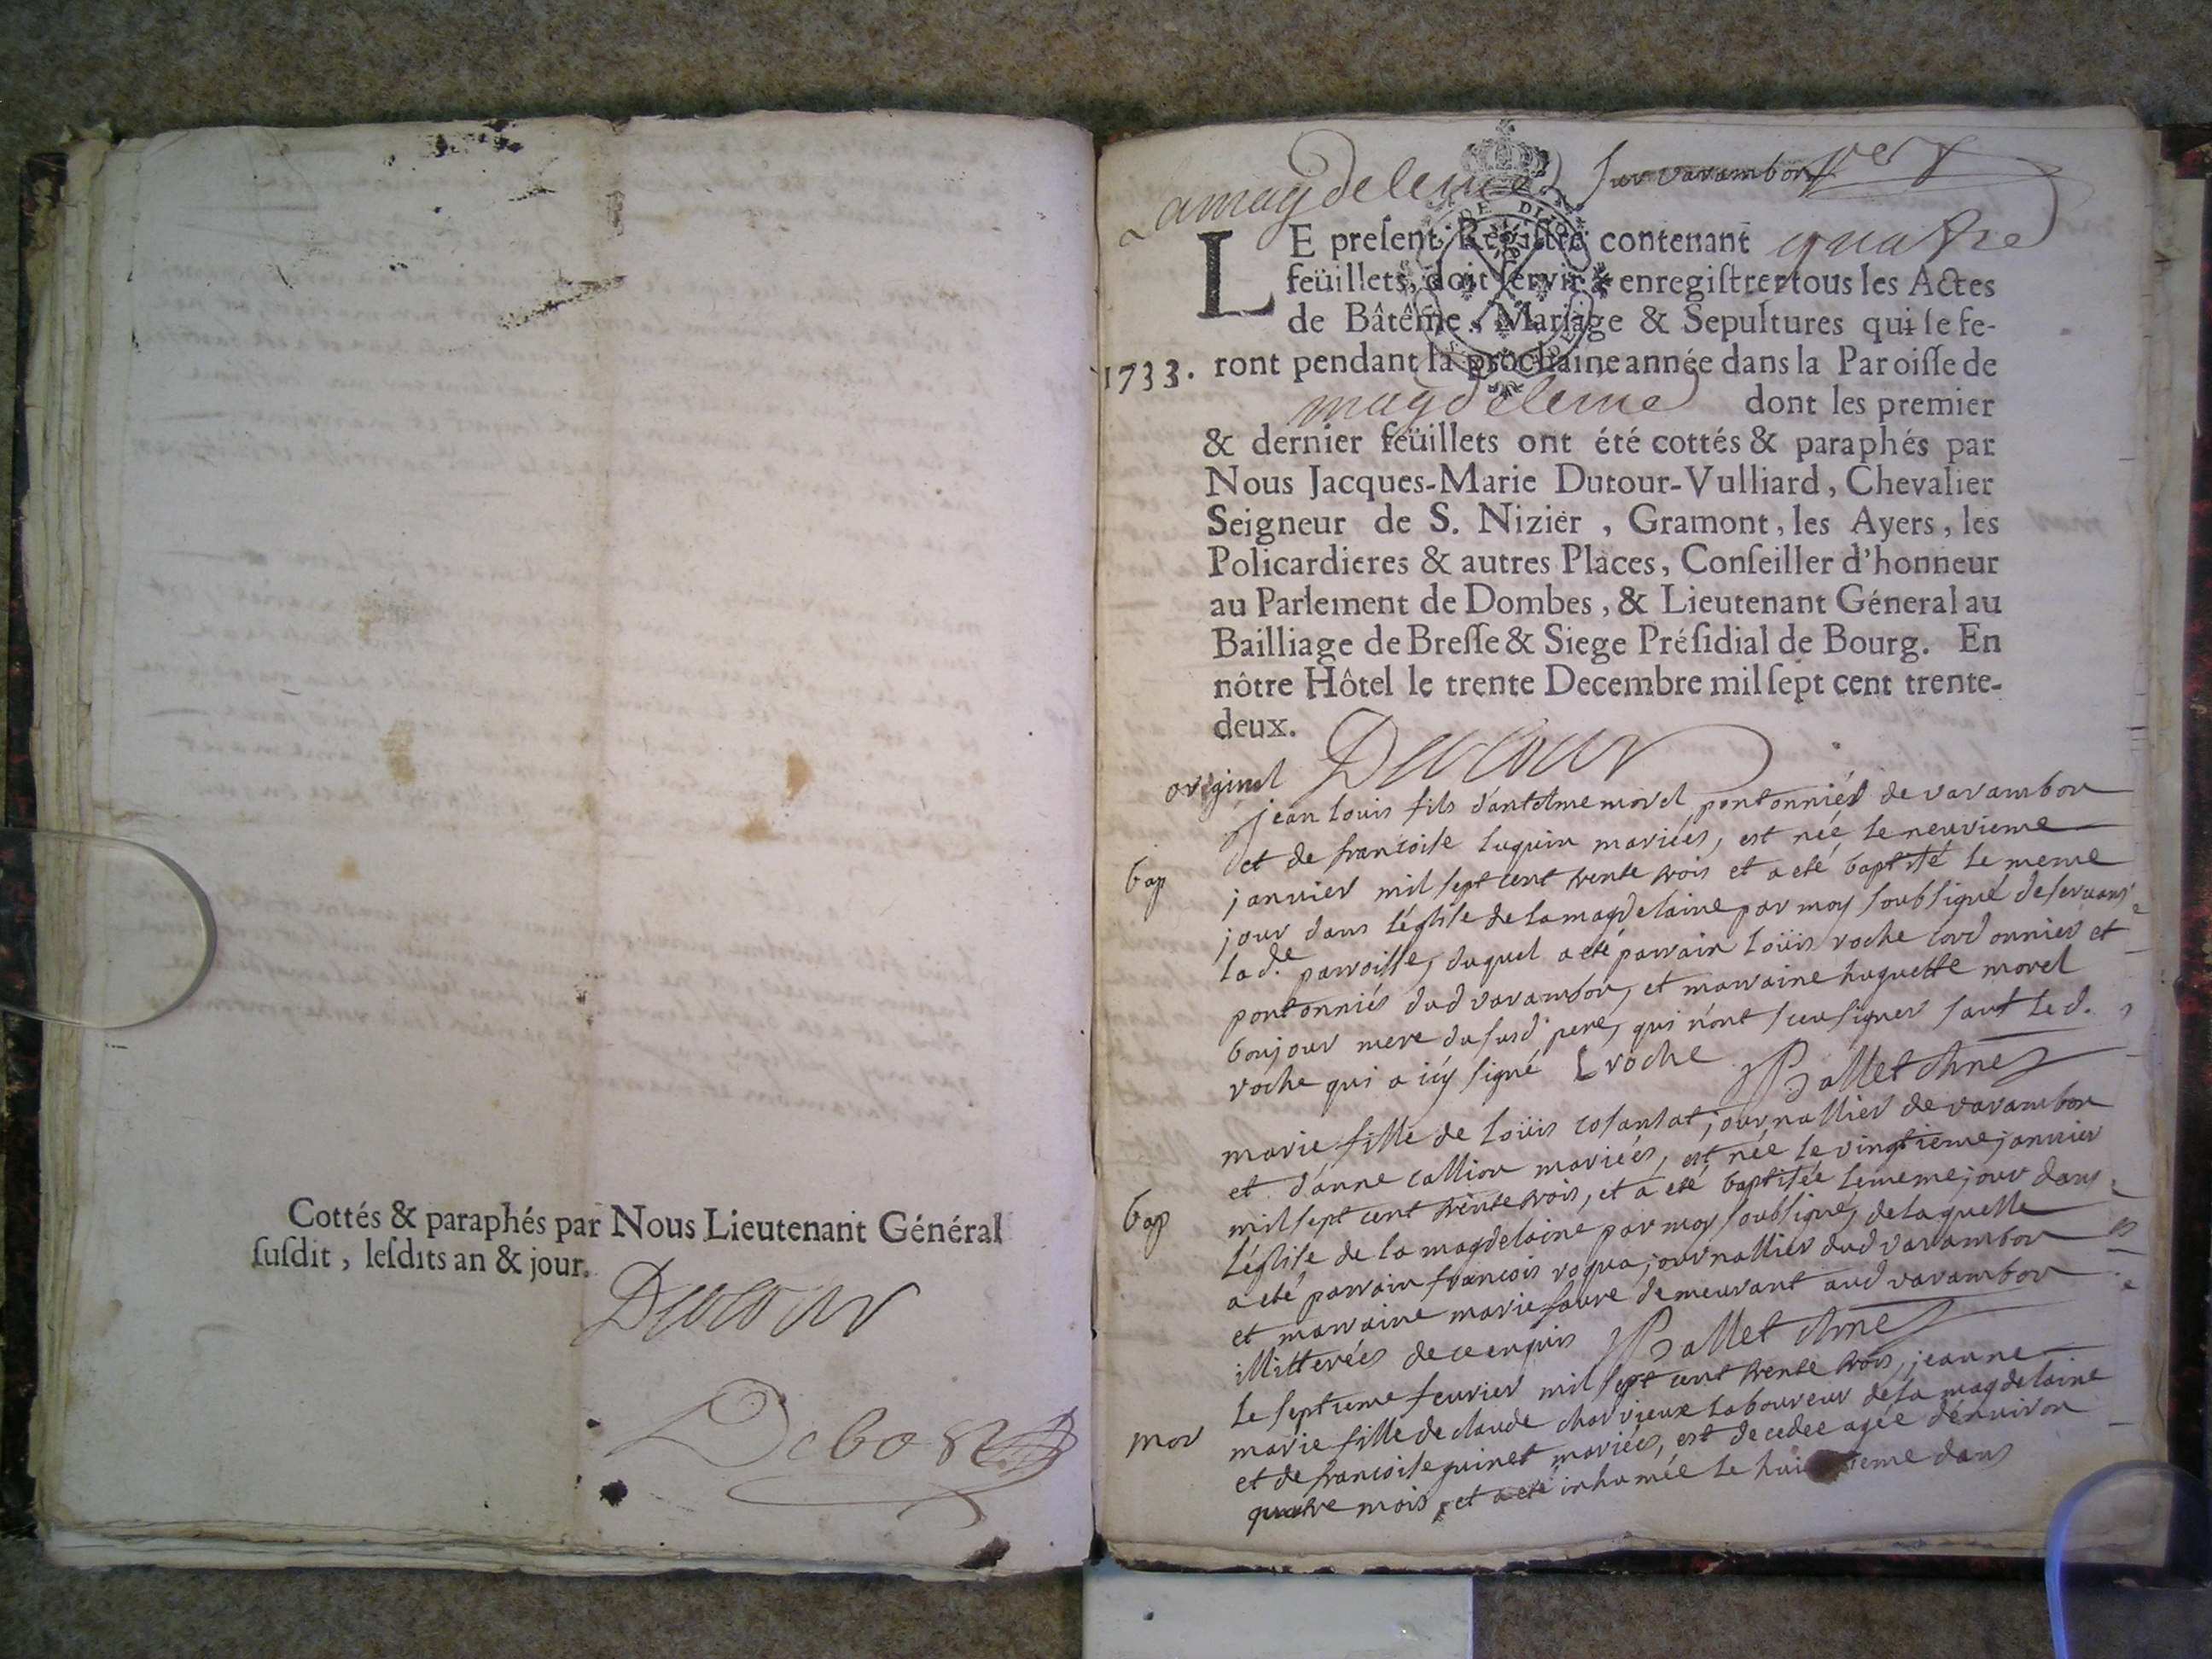 Cottés & paraphés par Nous Lieutenant Général
ſuſdit, leſdits an & jour.
Dutour
Lamagdeleine Sur varambon per
LE preſent Regiſtre contenant quatre
feüillets, doit ſervir à enregiſtrer tous les Actes
de Bâtême, Mariage & Sepultures qui ſe fe-
1733. ront pendant la prochaine année dans la Paroiſſe de
magdeleine dont les premier
& dernier feüillets ont été cottés & paraphés par
Nous Jacques-Marie Dutour-Vulliard, Chevalier
Seigneur de S. Nizier, Gramont, les Ayers, les
Policardieres & autres Places, Conſeiller d'honneur
au Parlement de Dombes, & Lieutenant Géneral au
Bailliage de Breſſe & Siege Préſidial de Bourg. En
nôtre Hôtel le trente Decembre mil ſept cent trente-
deux.
original Dutour
jean louis fils d'antelme morel pontonnier de varambon
et de francoise luquin mariées, est née le neuvieme
bap janvier mil sept cent trente trois et a eté baptisé le meme
jour dans l'église de la magdelaine par moy soubsigné deservant
lad.e parroisse, duquel a eté parrain loüis roche cordonnier et
pontonnier dud varambon, et marraine huguette morel
bonjour mere du susd. pere, qui n'ont sceu signer sauf led.
roche qui a icy signé L roche Ballet
marie fille de loüis cosansat journallier de varambon
et d'anne callion mariées, est née le vingtieme janvier
bap mil sept cent trente trois, et a eté baptisée le meme jour dans
l'église de la magdelaine par moy soubsigné, de laquelle
a eté parrain francois roqua journallier dud varambon
et marraine marie favre demeurant aud varambon
illitterées de ce enquis Ballet
le septieme fevrier mil sept cent trente trois, jeanne
mor marie fille de claude charvieux laboureur de la magdelaine
et de francoise guinet mariées, est decedee agée d'environ
quatre mois, et a eté inhumée le huitieme dans